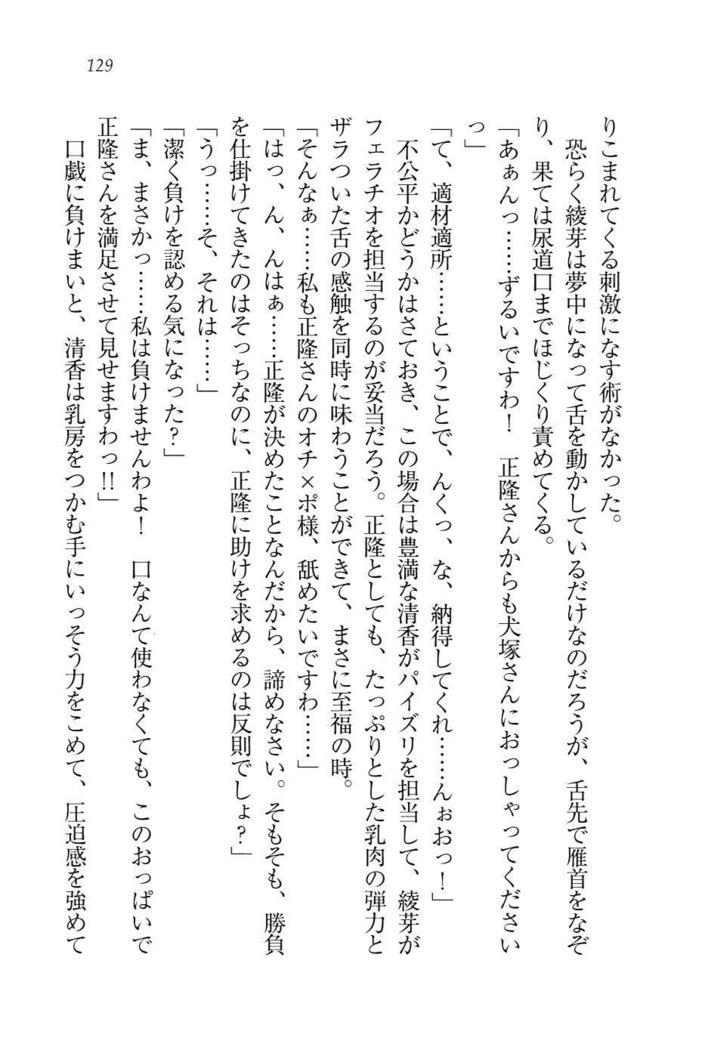 129
りこまれてくる刺激になす術がなかった。
恐らく綾芽は夢中になって舌を動かしているだけなのだろうが、舌先で雁首をなぞ
り、果ては尿道口までほじくり責めてくる。
「あぁんっ……ずるいですわ！　正隆さんからも犬塚さんにおっしゃってください
っ」
「て、適材適所……ということで、んくっ、な、納得してくれ……んぉおっ！」
不公平かどうかはさておき、この場合は豊満な清香がパイズリを担当して、綾芽が
フェラチオを担当するのが妥当だろう。正隆としても、たっぷりとした乳肉の弾力と
ザラついた舌の感触を同時に味わうことができて、まさに至福の時。
「そんなぁ……私も正隆さんのオチ×ポ様、舐めたいですわ……」
「はっ、ん、んはぁ……正隆が決めたことなんだから、諦めなさい。そもそも、勝負
を仕掛けてきたのはそっちなのに、正隆に助けを求めるのは反則でしょ？」
「うっ……そ、それは……」
「潔く負けを認める気になった？」
「ま、まさかっ……私は負けませんわよ！　口なんて使わなくても、このおっぱいで
正隆さんを満足させて見せますわっ!!」
口戯に負けまいと、清香は乳房をつかむ手にいっそう力をこめて、圧迫感を強めて